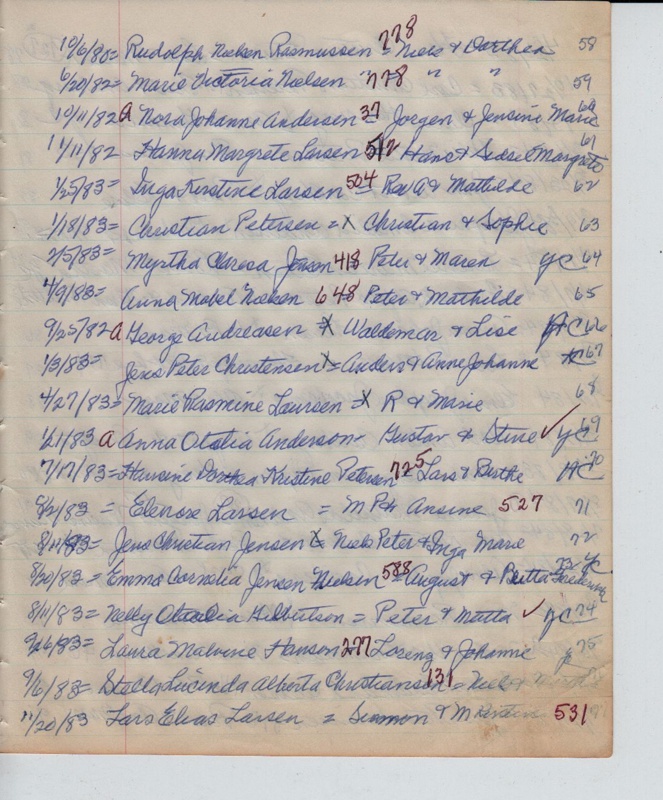 10/6/80= Rudolph Nielsen Rasmussen 778 = Niels & Dorthea 58
6/20/82= Marie Victoria Nielsen " 778 " " 59
10/11/82 A Nora Johanne Andersen 37 Jorgen & Jensine Marie 60
11/11/82 Hanna Margrete Larsen 512 Hans & Sidsel Margrete 61
1/25/83= Inga Kirstine Larsen 504 = Rev A & Mathilde 62
1/18/83= Christian Petersen = X Christian & Sophie 63
2/5/83= Myrtha Claresa Jensen 418 Peter & Maren yc 64
4/9/83= Anna Mabel Nielsen 648 Peter & Mathilde 65
9/25/82 A George Andreasen X Waldemar & Lise AC 66
1/3/83= Jens Peter Christensen X = Anders & Anne Johanne 67
4/27/83= Marie Rasmine Laursen = X R & Marie 68
1/21/83 A Anna Otalia Anderson - Gustav & Stine ✓ yc 69
7/17/83= Hansine Dorthea Kristine Petersen 725 = Lars & Birthe AC 70
8/2/83= Elenore Larsen = M P & Ansine 527 71
83= Jens Christian Jensen X Niels Peter & Inga Marie 72
8/30/83= Emma Cornelia Jensen Nielsen 588 = August & Butta 73 yc
8/11/83= Nelly Gilbertson = Peter & Matta ✓ yc 74
9/26/83= Laura Malvine Hansen 277 Lorenz & Johanne 75
9/6/83= Stella Lucinda Alberta Christiansen 131 =
11/20/83 Lars Elias Larsen = Simmon & M 531